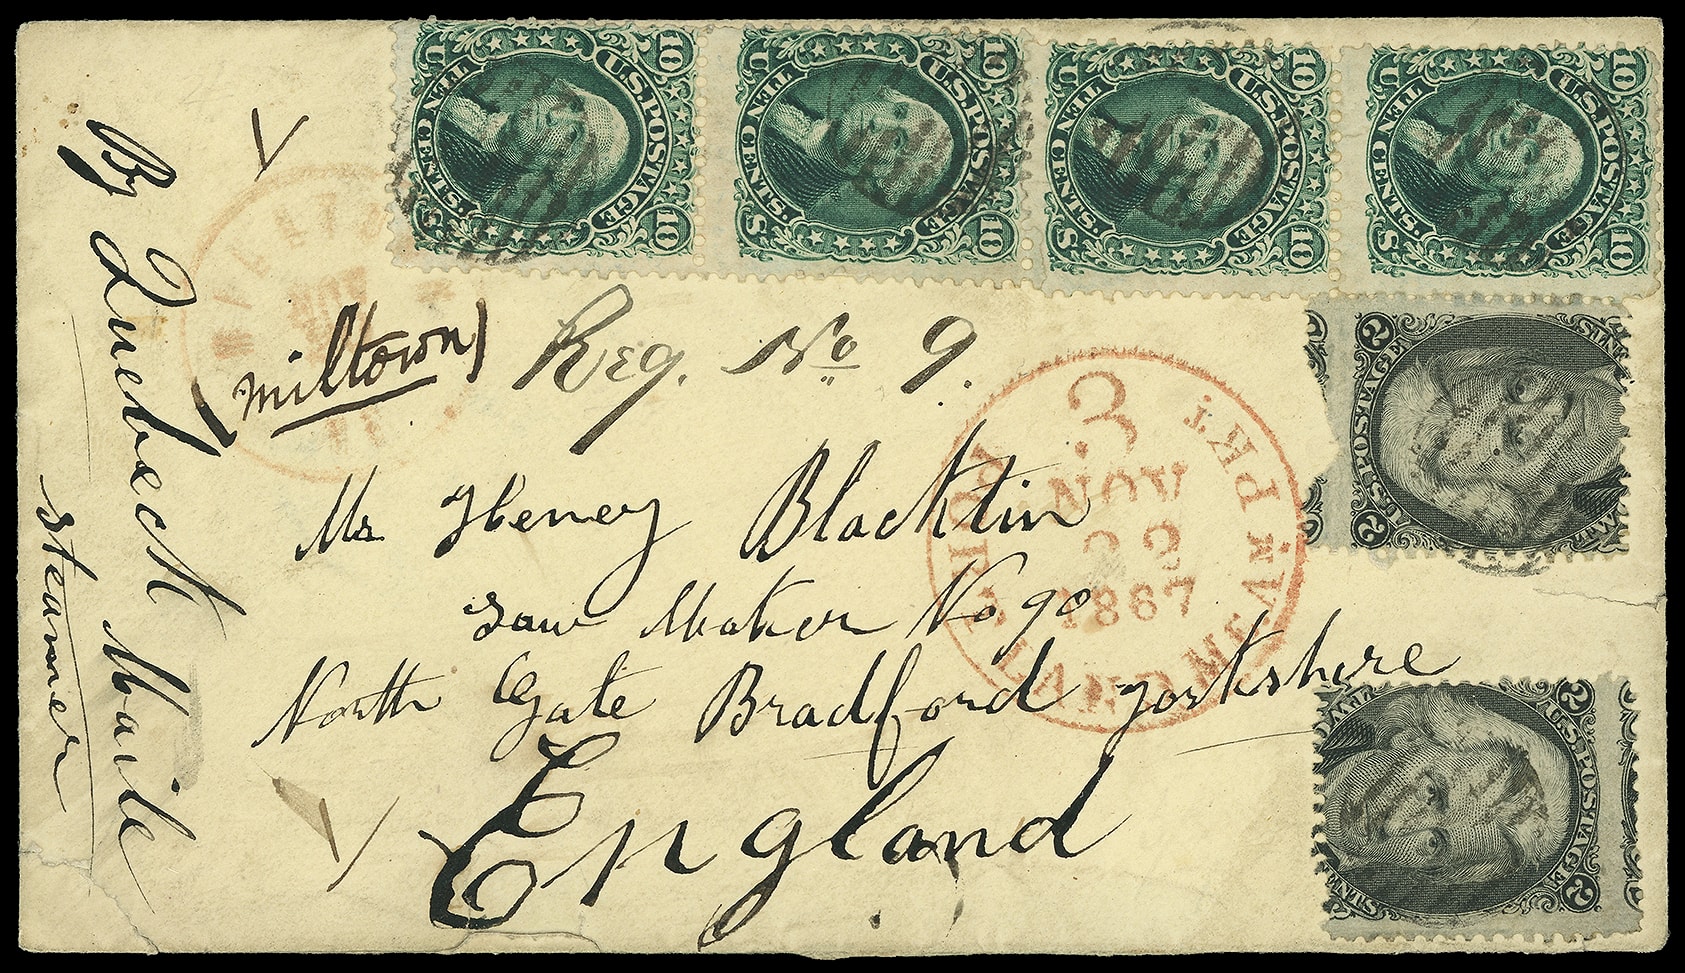 By Quebeck Maile
steamer
miltown)
Reg. No 9.
Mr Heney Blacktin
Saw Maker No 90
North Gate Bradford Yorkshire
England
U.S. POSTAGE
10 10
TEN CENTS.
U.S. POSTAGE
10 10
TEN CENTS.
U.S. POSTAGE
10 10
TEN CENTS.
U.S. POSTAGE
10 10
TEN CENTS.
U.S. POSTAGE
2 2
U.S. POSTAGE
2 2
NEW YORK AM. PKT
3
NOV
22
1867